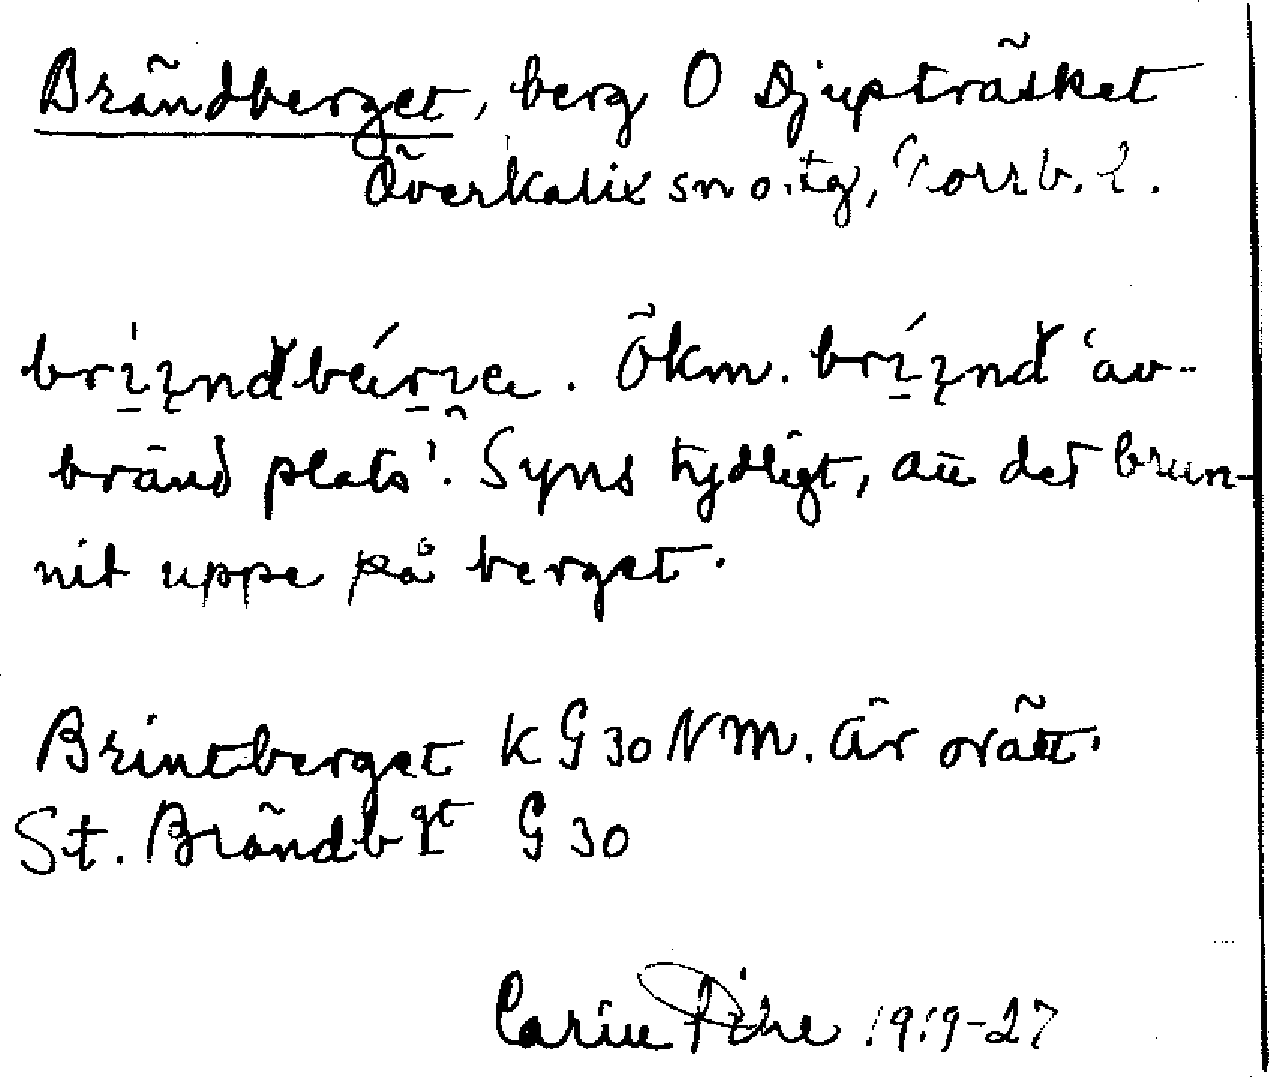 Brändberget, berg O Djupträsket
Överkalix sn o. tg, Norrb. l.
Ökm. 'av-
bränd plats'. Syns tydligt, att det brun-
nit uppe på berget.
Brintberget K G 30 N M. Är orätt.
St. Brändbgt G 30
Carin Pihl 1919-27